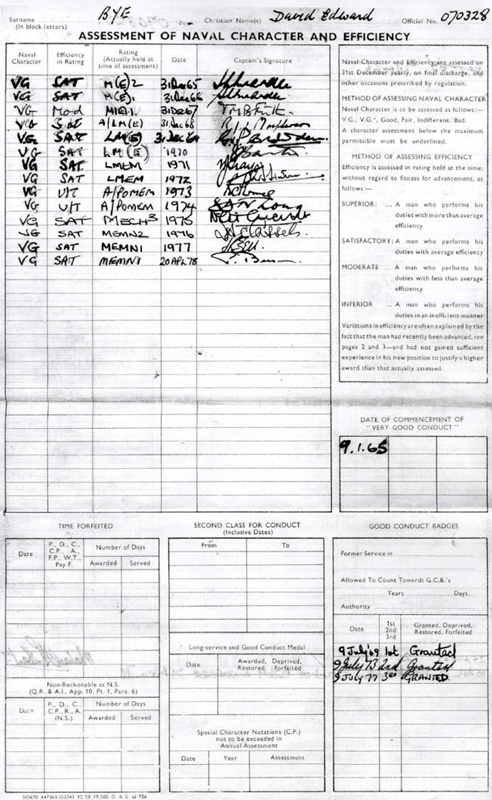 Surname BYE Christian Name(s) David Edward Official No. 070328
(In block letters)
ASSESSMENT OF NAVAL CHARACTER AND EFFICIENCY
Naval Character Efficiency in Rating Rating (Actually held at time of assessment) Date Captain's Signature
VG SAT M(E)2 31 Dec 65
VG SAT M(E)1 31 Dec 66
VG Mod M(E)1 31 Dec 67
VG Sat A/LM(E) 31 Dec 68
VG SAT LM(E) 31 Dec 69
VG SAT LM(E) 1970
VG SAT LMEM 1971
VG SAT LMEM 1972
VG UIT A/POMEM 1973
VG UIT A/POMEM 1974
VG SAT MECH3 1975
VG SAT MEMN2 1976
VG SAT MEMN1 1977
VG SAT MEMN1 20 APL 78
Naval Character and Efficiency are assessed on
31st December yearly, on final discharge, and on
other occasions prescribed by regulation.
METHOD OF ASSESSING NAVAL CHARACTER
Naval Character is to be assessed as follows:—
V.G., V.G.*, Good, Fair, Indifferent, Bad.
A character assessment below the maximum
permissible must be underlined.
METHOD OF ASSESSING EFFICIENCY
Efficiency is assessed in rating held at the time,
without regard to fitness for advancement, as
follows:—
SUPERIOR: ... A man who performs his
duties with more than average
efficiency
SATISFACTORY: A man who performs his
duties with average efficiency
MODERATE ... A man who performs his
duties with less than average
efficiency
INFERIOR ... A man who performs his
duties in an inefficient manner
Variations in efficiency are often explained by the
fact that the man had recently been advanced, see
pages 2 and 3—and had not gained sufficient
experience in his new position to justify a higher
award than that actually assessed.
DATE OF COMMENCEMENT OF
"VERY GOOD CONDUCT"
9.1.65
TIME FORFEITED
Date P., D., C., C.P., A., F.P., W.T., Pay F. Number of Days
Awarded Served
Non-Reckonable as N.S.
(Q.R. & A.I., App. 10, Pt. 1, Para. 6)
Date P., D., C., C.P., R., A. (N.S.). Number of Days
Awarded Served
SECOND CLASS FOR CONDUCT
(Inclusive Dates)
From To
Long-service and Good Conduct Medal
Date Awarded, Deprived, Restored, Forfeited
Special Character Notations (C.P.)
not to be exceeded in
Annual Assessment
C.P. Date Assessment
GOOD CONDUCT BADGES
Former Service in
Allowed To Count Towards G.C.B.'s
Years Days
Authority
Date 1st 2nd 3rd Granted, Deprived, Restored, Forfeited
9 July 69 1st Granted
9 July 73 2nd Granted
9 July 77 3rd GRANTED